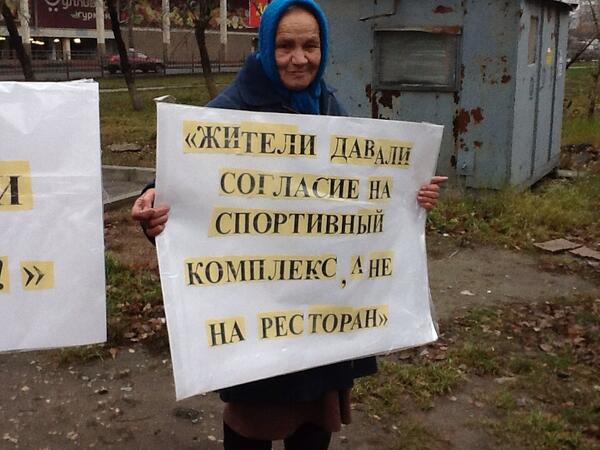 УЛЛИВЕР
ГУРМАН
И
!»
«ЖИТЕЛИ ДАВАЛИ
СОГЛАСИЕ НА
СПОРТИВНЫЙ
КОМПЛЕКС, А НЕ
НА РЕСТОРАН»